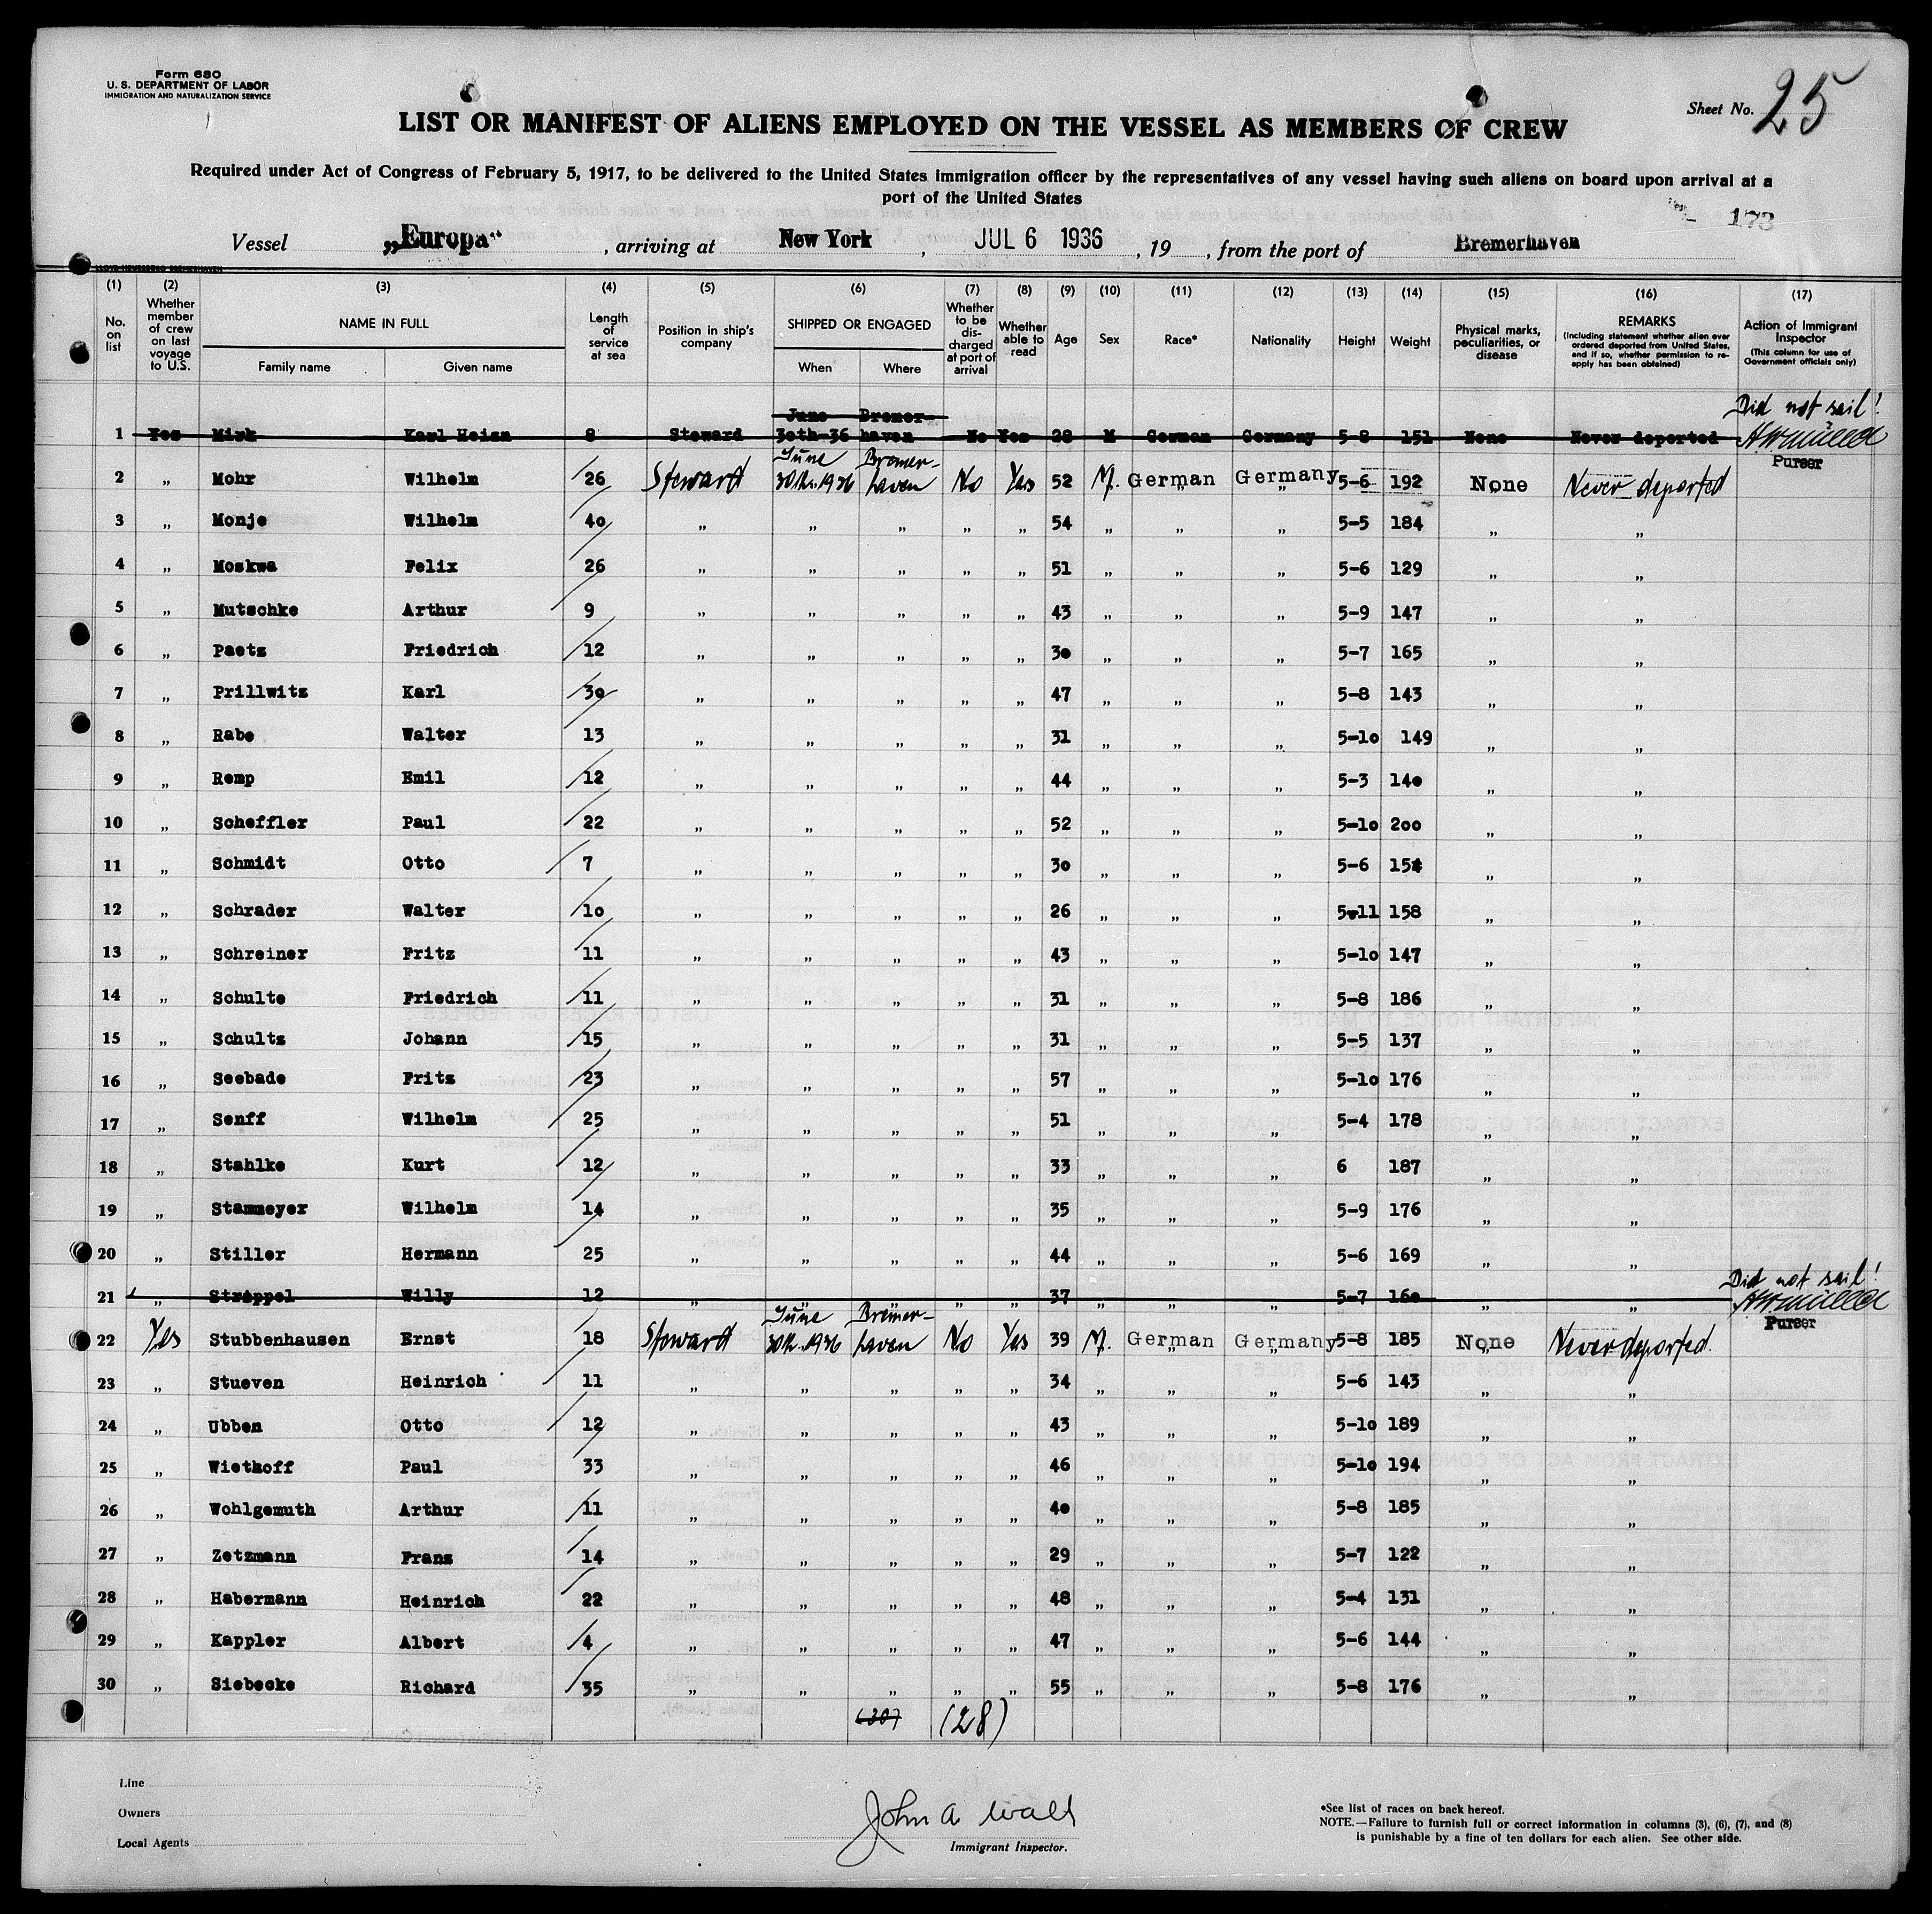 Form 680
U. S. DEPARTMENT OF LABOR
IMMIGRATION AND NATURALIZATION SERVICE
Sheet No. 25
LIST OR MANIFEST OF ALIENS EMPLOYED ON THE VESSEL AS MEMBERS OF CREW
Required under Act of Congress of February 5, 1917, to be delivered to the United States immigration officer by the representatives of any vessel having such aliens on board upon arrival at a
port of the United States
173
Vessel „Europa“, arriving at New York, JUL 6 1936, 19, from the port of Bremerhaven
(1) (2) (3) (4) (5) (6) (7) (8) (9) (10) (11) (12) (13) (14) (15) (16) (17)
No. on list
Whether member of crew on last voyage to U.S.
NAME IN FULL
Family name Given name
Length of service at sea
Position in ship's company
SHIPPED OR ENGAGED
When Where
Whether to be discharged at port of arrival
Whether able to read
Age
Sex
Race*
Nationality
Height
Weight
Physical marks, peculiarities, or disease
REMARKS
(Including statement whether alien ever ordered deported from United States, and if so, whether permission to re-apply has been obtained)
Action of Immigrant Inspector
(This column for use of Government officials only)
Did not sail!
June Bremer-
1 Yes Mirk Karl Heinz 8 Steward 30th-36 haven No Yes 28 M German Germany 5-8 151 None Never deported
Purser
June Bremer-
2 „ Mohr Wilhelm 26 Steward 30th.1936 haven No Yes 52 M. German Germany 5-6 192 None Never deported
3 „ Monje Wilhelm 40 „ „ „ „ „ 54 „ „ „ 5-5 184 „ „
4 „ Moskwa Felix 26 „ „ „ „ „ 51 „ „ „ 5-6 129 „ „
5 „ Mutschke Arthur 9 „ „ „ „ „ 43 „ „ „ 5-9 147 „ „
6 „ Paetz Friedrich 12 „ „ „ „ „ 30 „ „ „ 5-7 165 „ „
7 „ Prillwitz Karl 30 „ „ „ „ „ 47 „ „ „ 5-8 143 „ „
8 „ Rabe Walter 13 „ „ „ „ „ 31 „ „ „ 5-10 149 „ „
9 „ Remp Emil 12 „ „ „ „ „ 44 „ „ „ 5-3 140 „ „
10 „ Scheffler Paul 22 „ „ „ „ „ 52 „ „ „ 5-10 200 „ „
11 „ Schmidt Otto 7 „ „ „ „ „ 30 „ „ „ 5-6 „ „
12 „ Schrader Walter 10 „ „ „ „ „ 26 „ „ „ 5-11 158 „ „
13 „ Schreiner Fritz 11 „ „ „ „ „ 43 „ „ „ 5-10 147 „ „
14 „ Schulte Friedrich 11 „ „ „ „ „ 31 „ „ „ 5-8 186 „ „
15 „ Schultz Johann 15 „ „ „ „ „ 31 „ „ „ 5-5 137 „ „
16 „ Seebade Fritz 23 „ „ „ „ „ 57 „ „ „ 5-10 176 „ „
17 „ Senff Wilhelm 25 „ „ „ „ „ 51 „ „ „ 5-4 178 „ „
18 „ Stahlke Kurt 12 „ „ „ „ „ 33 „ „ „ 6 187 „ „
19 „ Stammeyer Wilhelm 14 „ „ „ „ „ 35 „ „ „ 5-9 176 „ „
20 „ Stiller Hermann 25 „ „ „ „ „ 44 „ „ „ 5-6 169 „ „
Did not sail!
21 „ Ströppel Willy 12 „ „ „ „ „ 37 „ „ „ 5-7 160 „ „
Purser
June Bremer-
22 Yes Stubbenhausen Ernst 18 Steward 30th.1936 haven No Yes 39 M. German Germany 5-8 185 None Never deported.
23 „ Stueven Heinrich 11 „ „ „ „ „ 34 „ „ „ 5-6 143 „ „
24 „ Ubben Otto 12 „ „ „ „ „ 43 „ „ „ 5-10 189 „ „
25 „ Wiethoff Paul 33 „ „ „ „ „ 46 „ „ „ 5-10 194 „ „
26 „ Wohlgemuth Arthur 11 „ „ „ „ „ 40 „ „ „ 5-8 185 „ „
27 „ Zetzmann Franz 14 „ „ „ „ „ 29 „ „ „ 5-7 122 „ „
28 „ Habermann Heinrich 22 „ „ „ „ „ 48 „ „ „ 5-4 131 „ „
29 „ Kappler Albert 4 „ „ „ „ „ 47 „ „ „ 5-6 144 „ „
30 „ Siebecke Richard 35 „ „ „ „ „ 55 „ „ „ 5-8 176 „ „
(30) (28)
Line
Owners
Local Agents
John A Wald
Immigrant Inspector.
*See list of races on back hereof.
NOTE.—Failure to furnish full or correct information in columns (3), (6), (7), and (8)
is punishable by a fine of ten dollars for each alien. See other side.